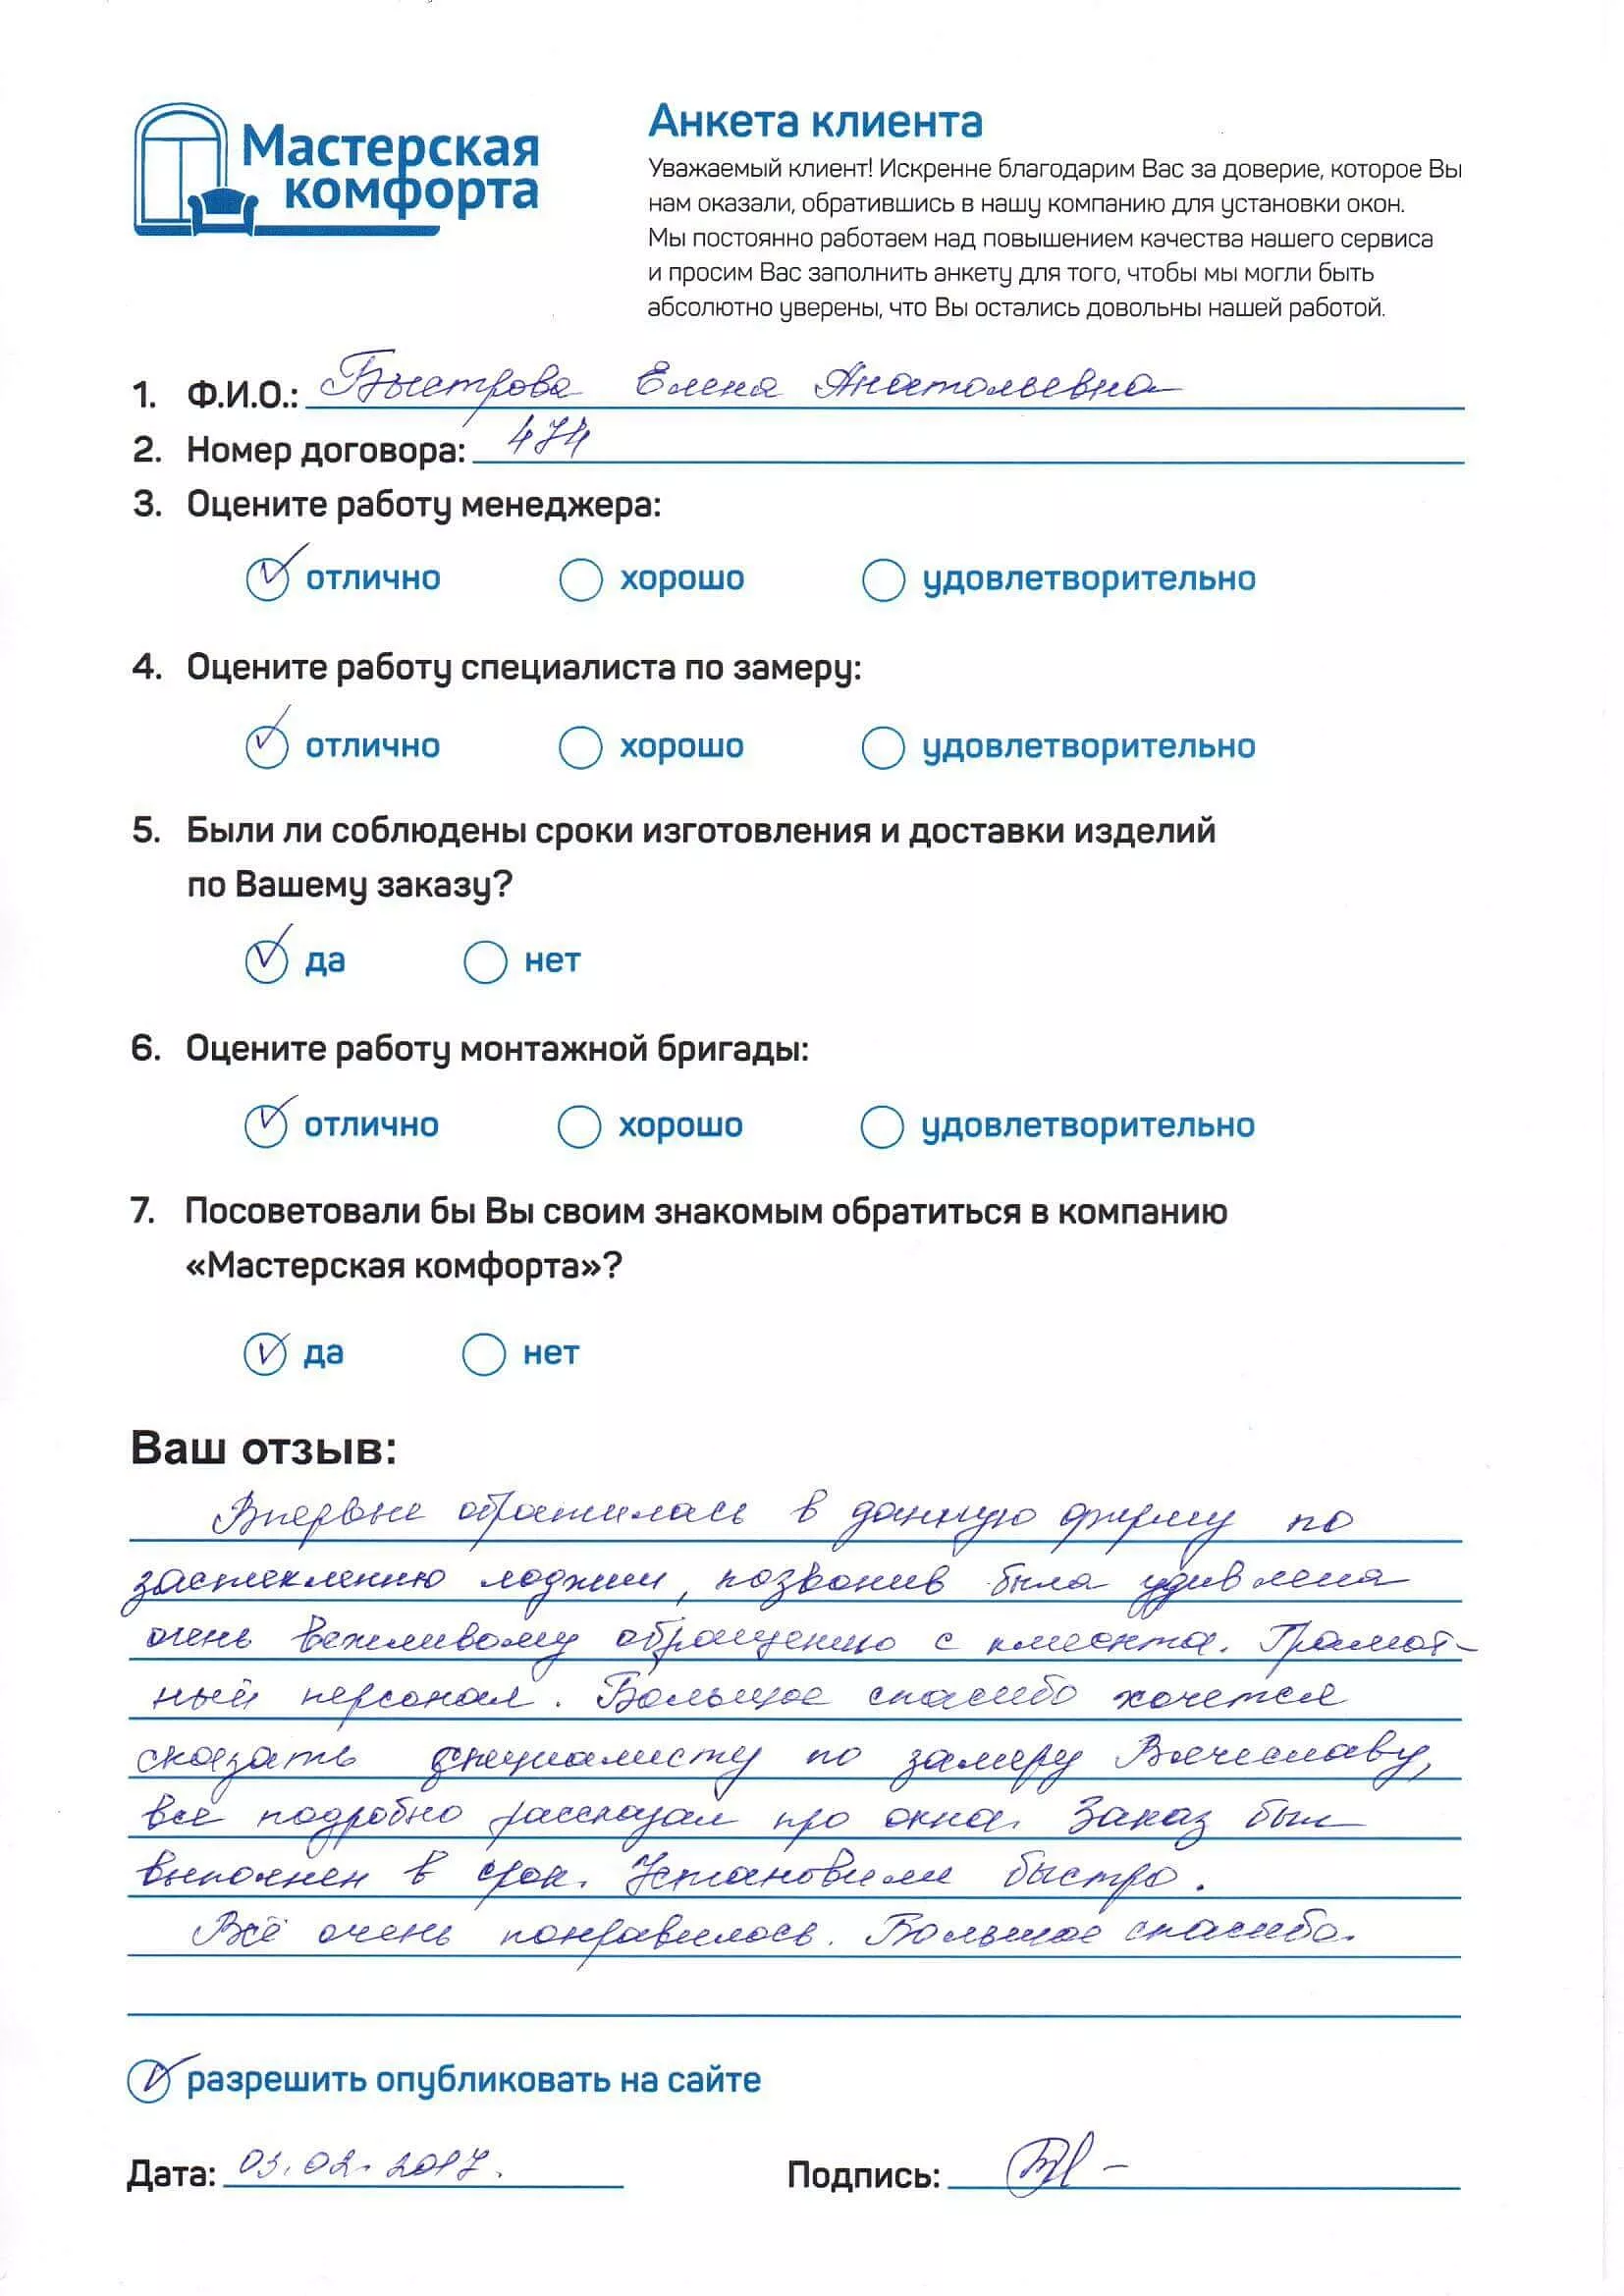 Мастерская
комфорта
Анкета клиента
Уважаемый клиент! Искренне благодарим Вас за доверие, которое Вы
нам оказали, обратившись в нашу компанию для установки окон.
Мы постоянно работаем над повышением качества нашего сервиса
и просим Вас заполнить анкету для того, чтобы мы могли быть
абсолютно уверены, что Вы остались довольны нашей работой.
1. Ф.И.О.: Быстрова Елена Анатольевна
2. Номер договора: 474
3. Оцените работу менеджера:
отлично хорошо удовлетворительно
4. Оцените работу специалиста по замеру:
отлично хорошо удовлетворительно
5. Были ли соблюдены сроки изготовления и доставки изделий
по Вашему заказу?
да нет
6. Оцените работу монтажной бригады:
отлично хорошо удовлетворительно
7. Посоветовали бы Вы своим знакомым обратиться в компанию
«Мастерская комфорта»?
да нет
Ваш отзыв:
Впервые обратилась в данную фирму по
застеклению лоджии, позвонив была удивлена
очень вежливому обращению с клиента. Грамот-
ный персонал. Большое спасибо хочется
сказать специалисту по замеру Вячеславу,
все подробно рассказал про окна. Заказ был
выполнен в срок. Установили быстро.
Всё очень понравилось. Большое спасибо.
разрешить опубликовать на сайте
Дата: 03.02.2017. Подпись: